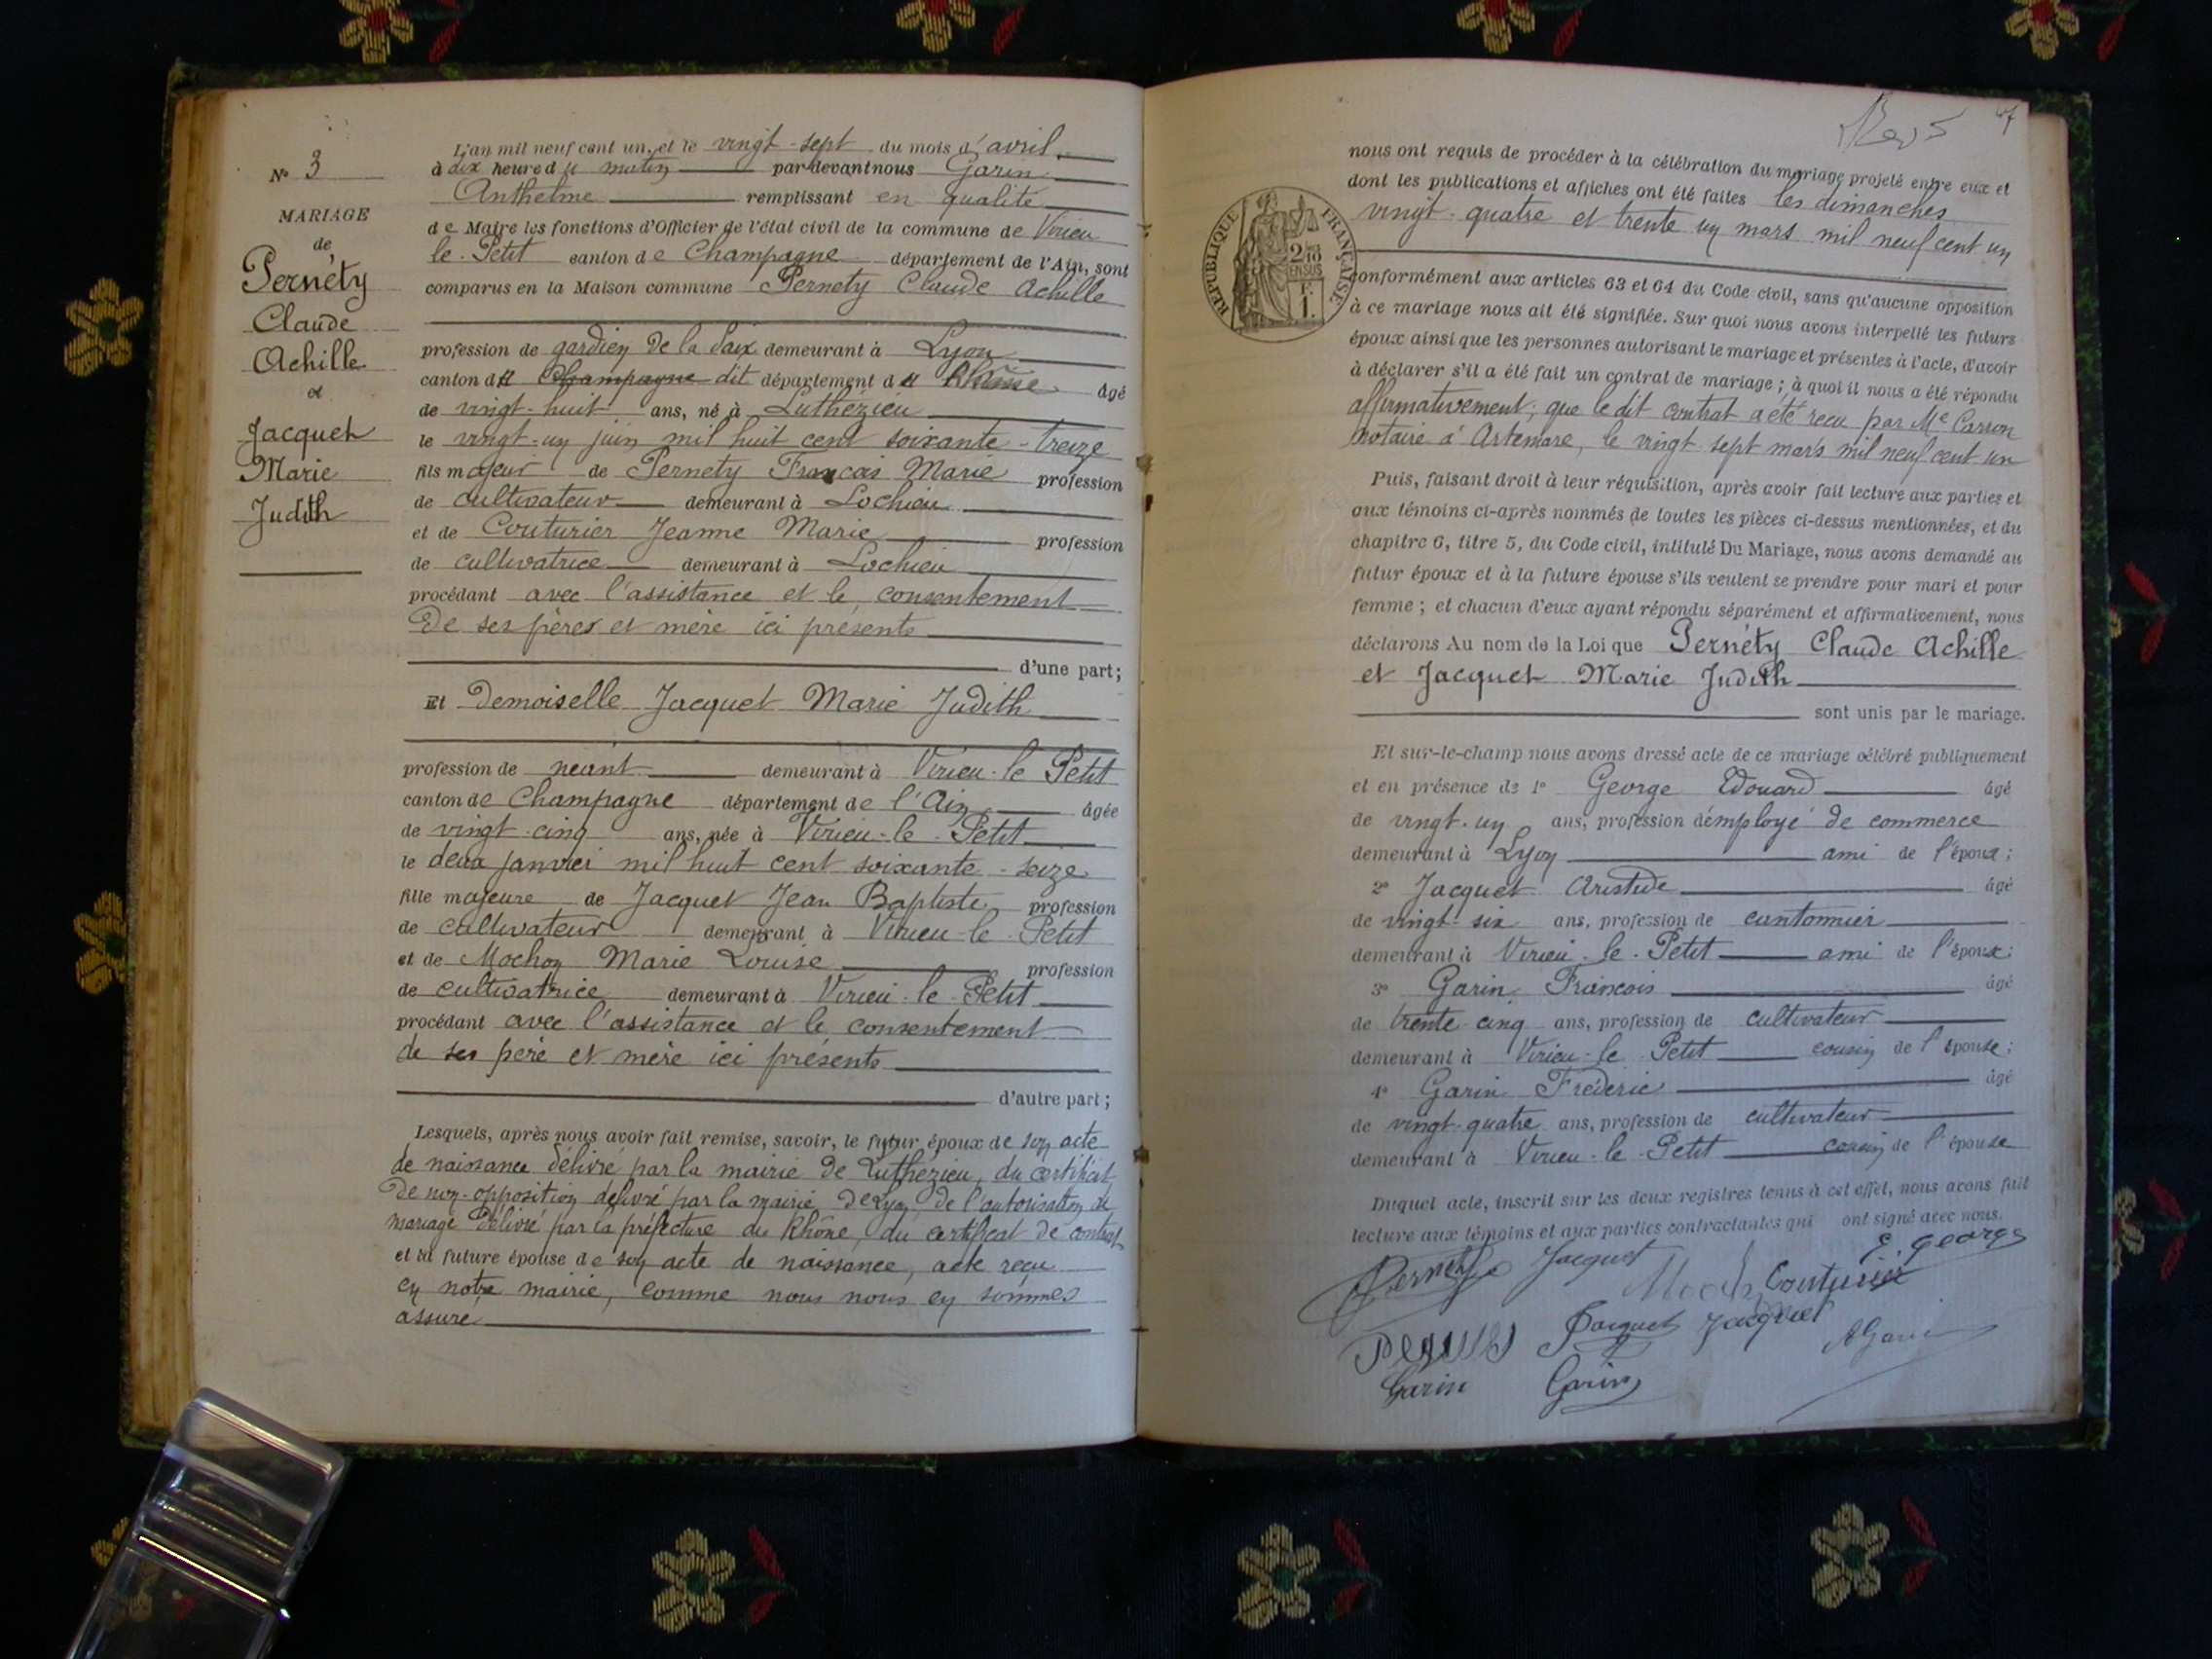 Nº 3
MARIAGE
de
Pernéty
Claude
Achille
et
Jacquet
Marie
Judith
L'an mil neuf cent un, et le vingt-sept du mois d'avril
à dix heure du matin par devant nous Garin
Anthelme remplissant en qualité
de Maire les fonctions d'Officier de l'état civil de la commune de Virieu
le-Petit canton de Champagne département de l'Ain, sont
comparus en la Maison commune Pernety Claude Achille
profession de gardien de la Paix demeurant à Lyon
canton du Champagne dit département du Rhône âgé
de vingt-huit ans, né à Luthézieu
le vingt-un juin mil huit cent soixante-treize
fils majeur de Pernety Francois Marie profession
de cultivateur demeurant à Lochieu
et de Couturier Jeanne Marie profession
de cultivatrice demeurant à Lochieu
procédant avec l'assistance et le consentement
de ses pères et mère ici présents
d'une part;
Et Demoiselle Jacquet Marie Judith
profession de néant demeurant à Virieu-le Petit
canton de Champagne département de l'Ain âgée
de vingt-cinq ans, née à Virieu-le-Petit
le deux janvier mil huit cent soixante-seize
fille majeure de Jacquet Jean Baptiste profession
de cultivateur demeurant à Virieu-le-Petit
et de Mochon Marie Louise profession
de cultivatrice demeurant à Virieu-le-Petit
procédant avec l'assistance et le consentement
de ses père et mère ici présents
d'autre part;
Lesquels, après nous avoir fait remise, savoir, le futur époux de son acte
de naissance délivré par la mairie de Luthézieu, du certificat
de non-opposition délivré par la mairie de Lyon, de l'autorisation de
mariage délivré par la préfecture du Rhône, du certificat de contrat
et la future épouse de son acte de naissance, acte reçu
en notre mairie, comme nous nous en sommes
assuré
47
nous ont requis de procéder à la célébration du mariage projeté entre eux et
dont les publications et affiches ont été faites les dimanches
vingt-quatre et trente un mars mil neuf cent un
RÉPUBLIQUE FRANÇAISE
2/10
EN SUS
1 F.
conformément aux articles 63 et 64 du Code civil, sans qu'aucune opposition
à ce mariage nous ait été signifiée. Sur quoi nous avons interpellé les futurs
époux ainsi que les personnes autorisant le mariage et présentes à l'acte, d'avoir
à déclarer s'il a été fait un contrat de mariage; à quoi il nous a été répondu
affirmativement; que le dit contrat a été reçu par Me Carron
notaire à Artemare, le vingt sept mars mil neuf cent un
Puis, faisant droit à leur réquisition, après avoir fait lecture aux parties et
aux témoins ci-après nommés de toutes les pièces ci-dessus mentionnées, et du
chapitre 6, titre 5, du Code civil, intitulé Du Mariage, nous avons demandé au
futur époux et à la future épouse s'ils veulent se prendre pour mari et pour
femme; et chacun d'eux ayant répondu séparément et affirmativement, nous
déclarons Au nom de la Loi que Pernéty Claude Achille
et Jacquet Marie Judith
sont unis par le mariage.
Et sur-le-champ nous avons dressé acte de ce mariage célébré publiquement
et en présence de 1º George Edouard âgé
de vingt-un ans, profession d'employé de commerce
demeurant à Lyon ami de l'époux;
2º Jacquet Aristide âgé
de vingt-six ans, profession de cantonnier
demeurant à Virieu-le-Petit ami de l'époux;
3º Garin Francois âgé
de trente-cinq ans, profession de cultivateur
demeurant à Virieu-le-Petit cousin de l'épouse;
4º Garin Fréderic âgé
de vingt-quatre ans, profession de cultivateur
demeurant à Virieu-le-Petit cousin de l'épouse
Duquel acte, inscrit sur les deux registres tenus à cet effet, nous avons fait
lecture aux témoins et aux parties contractantes qui ont signé avec nous.
Pernety Jacquet E. George
Couturier
Jacquet Jacquet
Garin Garin AGarin